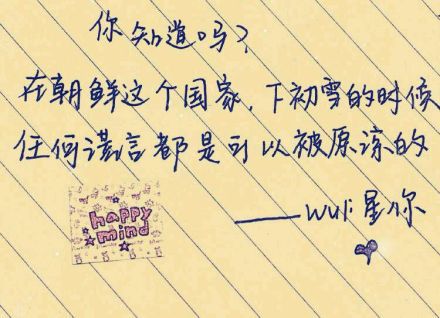 你知道吗?
在朝鲜这个国家,下初雪的时候
任何谎言都是可以被原谅的
——wuli星你
happy
mind